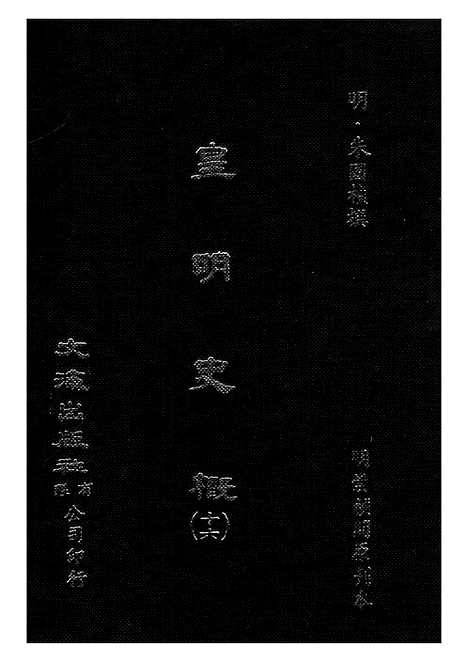 明·朱國禎撰
明崇禎間原刊本
皇明史概
(十六)
文海出版社
有限
公司印行